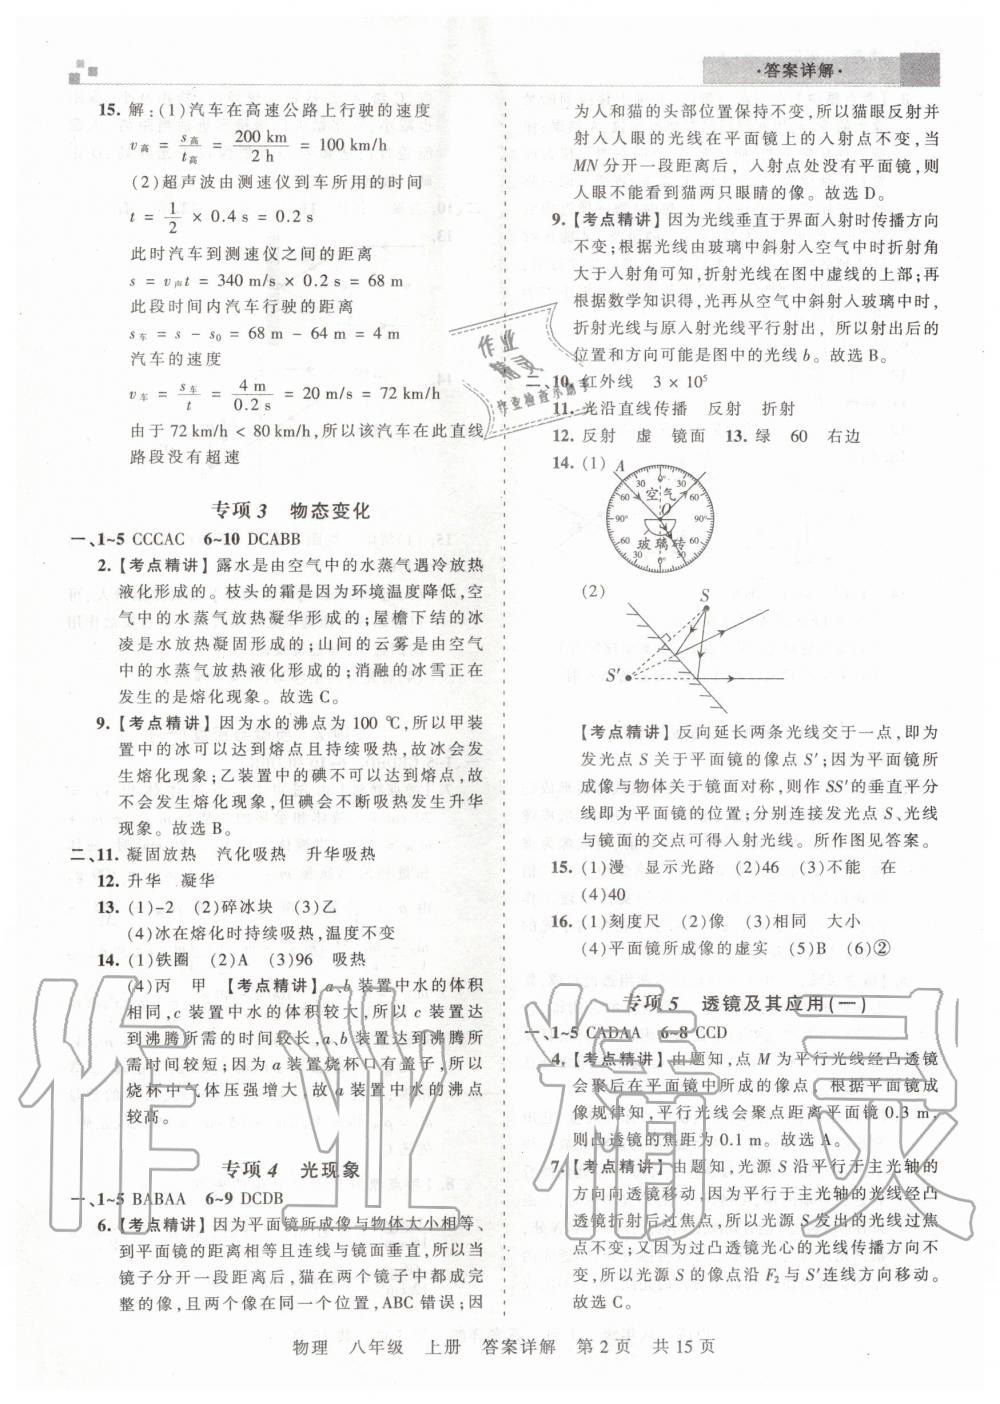 ·答案详解·
15. 解:(1)汽车在高速公路上行驶的速度
v高 = s高/t高 = 200 km/2 h = 100 km/h
(2)超声波由测速仪到车所用的时间
t = 1/2 × 0.4 s = 0.2 s
此时汽车到测速仪之间的距离
s = v声t = 340 m/s × 0.2 s = 68 m
此段时间内汽车行驶的距离
s车 = s - s0 = 68 m - 64 m = 4 m
汽车的速度
v车 = s车/t = 4 m/0.2 s = 20 m/s = 72 km/h
由于 72 km/h < 80 km/h,所以该汽车在此直线
路段没有超速
专项 3 物态变化
一、1~5 CCCAC 6~10 DCABB
2.【考点精讲】露水是由空气中的水蒸气遇冷放热
液化形成的。枝头的霜是因为环境温度降低,空
气中的水蒸气放热凝华形成的;屋檐下结的冰
凌是水放热凝固形成的;山间的云雾是由空气
中的水蒸气放热液化形成的;消融的冰雪正在
发生的是熔化现象。故选 C。
9.【考点精讲】因为水的沸点为 100 ℃,所以甲装
置中的冰可以达到熔点且持续吸热,故冰会发
生熔化现象;乙装置中的碘不可以达到熔点,故
不会发生熔化现象,但碘会不断吸热发生升华
现象。故选 B。
二、11. 凝固放热 汽化吸热 升华吸热
12. 升华 凝华
13. (1)-2 (2)碎冰块 (3)乙
(4)冰在熔化时持续吸热,温度不变
14. (1)铁圈 (2)A (3)96 吸热
(4)丙 甲 【考点精讲】a、b 装置中水的体积
相同,c 装置中水的体积较大,所以 c 装置中水
达到沸腾所需的时间较长,a、b 装置达到沸腾所
需时间较短;因为 a 装置烧杯口有盖子,所以
烧杯中气体压强增大,故 a 装置中水的沸点
较高。
专项 4 光现象
一、1~5 BABAA 6~9 DCDB
6.【考点精讲】因为平面镜所成像与物体大小相等、
到平面镜的距离相等且连线与镜面垂直,所以当
镜子分开一段距离后,猫在两个镜子中都成完
整的像,且两个像在同一个位置,ABC 错误;因
为人和猫的头部位置保持不变,所以猫眼反射并
射入人眼的光线在平面镜上的入射点不变,当
MN 分开一段距离后,入射点处没有平面镜,则
人眼不能看到猫两只眼睛的像。故选 D。
9.【考点精讲】因为光线垂直于界面入射时传播方向
不变;根据光线由玻璃中斜射入空气中时折射角
大于入射角可知,折射光线在图中虚线的上部;再
根据数学知识得,光再从空气中斜射入玻璃中时,
折射光线与原入射光线平行射出,所以射出后的
位置和方向可能是图中的光线 b。故选 B。
二、10. 红外线 3 × 10⁵
11. 光沿直线传播 反射 折射
12. 反射 虚 镜面 13. 绿 60 右边
14. (1)
A
0°
30 30
60 空气 60
O
90° 90°
60 玻璃砖 60
30 30
0°
(2)
S
S′
【考点精讲】反向延长两条光线交于一点,即为
发光点 S 关于平面镜的像点 S′;因为平面镜所
成像与物体关于镜面对称,则作 SS′的垂直平分
线即为平面镜的位置;分别连接发光点 S、光线
与镜面的交点可得入射光线。所作图见答案。
15. (1)漫 显示光路 (2)46 (3)不能 在
(4)40
16. (1)刻度尺 (2)像 (3)相同 大小
(4)平面镜所成像的虚实 (5)B (6)②
专项 5 透镜及其应用(一)
一、1~5 CADAA 6~8 CCD
4.【考点精讲】由题知,点 M 为平行光线经凸透镜
会聚后在平面镜中所成的像点,根据平面镜成
像规律知,平行光线会聚点距离平面镜 0.3 m,
则凸透镜的焦距为 0.1 m。故选 A。
7.【考点精讲】由题知,光源 S 沿平行于主光轴的
方向向透镜移动,因为平行于主光轴的光线经凸
透镜折射后过焦点,所以光源 S 发出的光线过焦
点不变;又因为过凸透镜光心的光线传播方向不
变,所以光源 S 的像点沿 F2 与 S′连线方向移动。
故选 C。
作业
精灵
作业检查小助手
作业精灵
物理 八年级 上册 答案详解 第 2 页 共 15 页